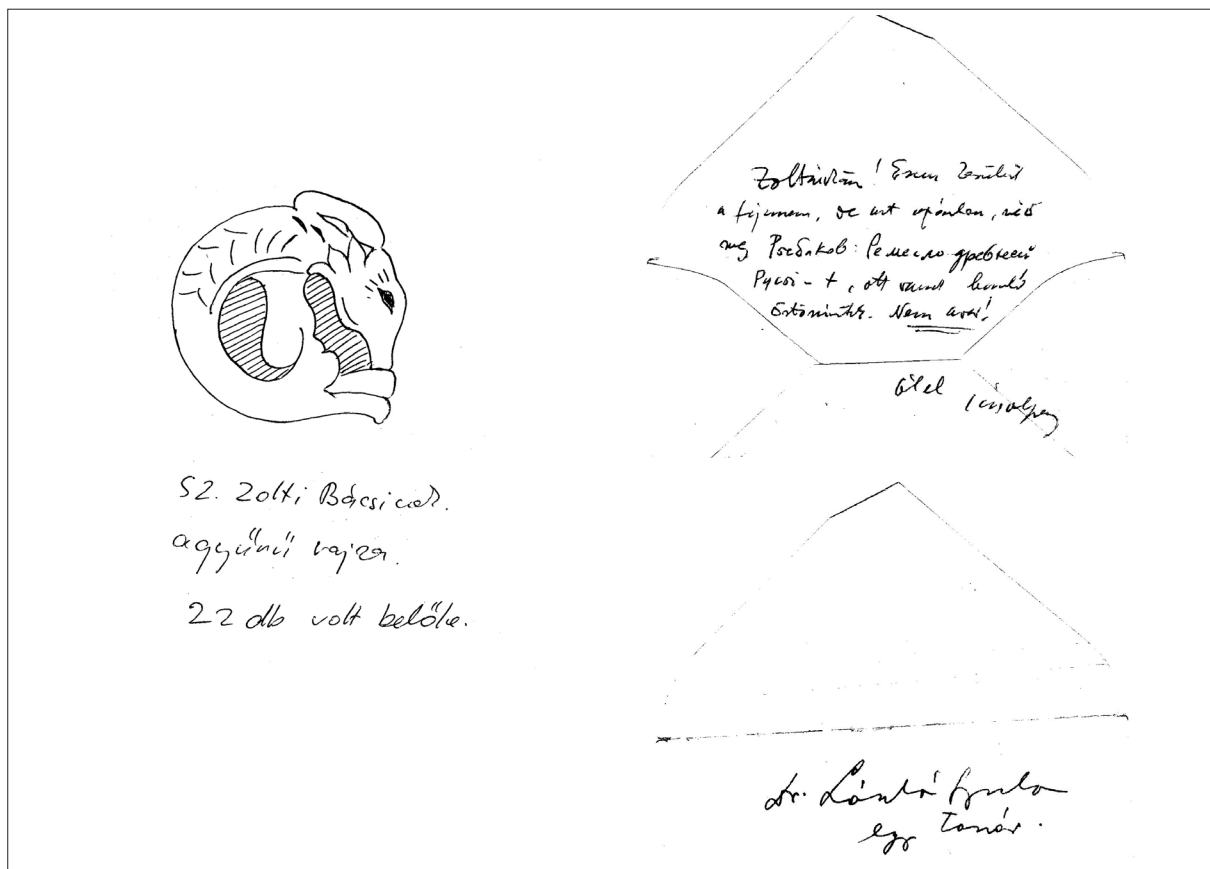 Sz. Zolti Bácsinak.
a gyűrű rajza.
22 db volt belőle.
Zoltánkám! Ezen
a fejemen, de azt ajánlom, nézd
meg Рыбаков: Ремесло древней
Руси-t, ott vannak hasonló
Nem avar!
ölel
dr. László Gyula
egy. tanár.